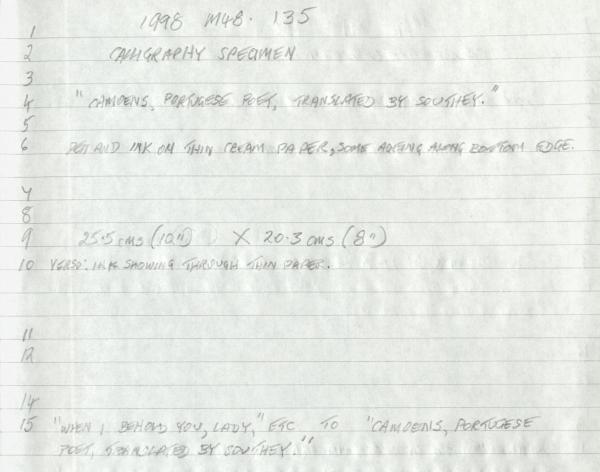 1998 M48. 135
1
2 CALLIGRAPHY SPECIMEN
3
4 "CAMOENS, PORTUGESE POET, TRANSLATED BY SOUTHEY."
5
6 PEN AND INK ON THIN CREAM PAPER, SOME AGEING ALONG BOTTOM EDGE.
7
8
9 25.5 cms (10") X 20.3 cms (8")
10 VERSO: INK SHOWING THROUGH THIN PAPER.
11
12
14
15 "WHEN I BEHOLD YOU, LADY," ETC TO "CAMOENS, PORTUGESE
POET, TRANSLATED BY SOUTHEY."